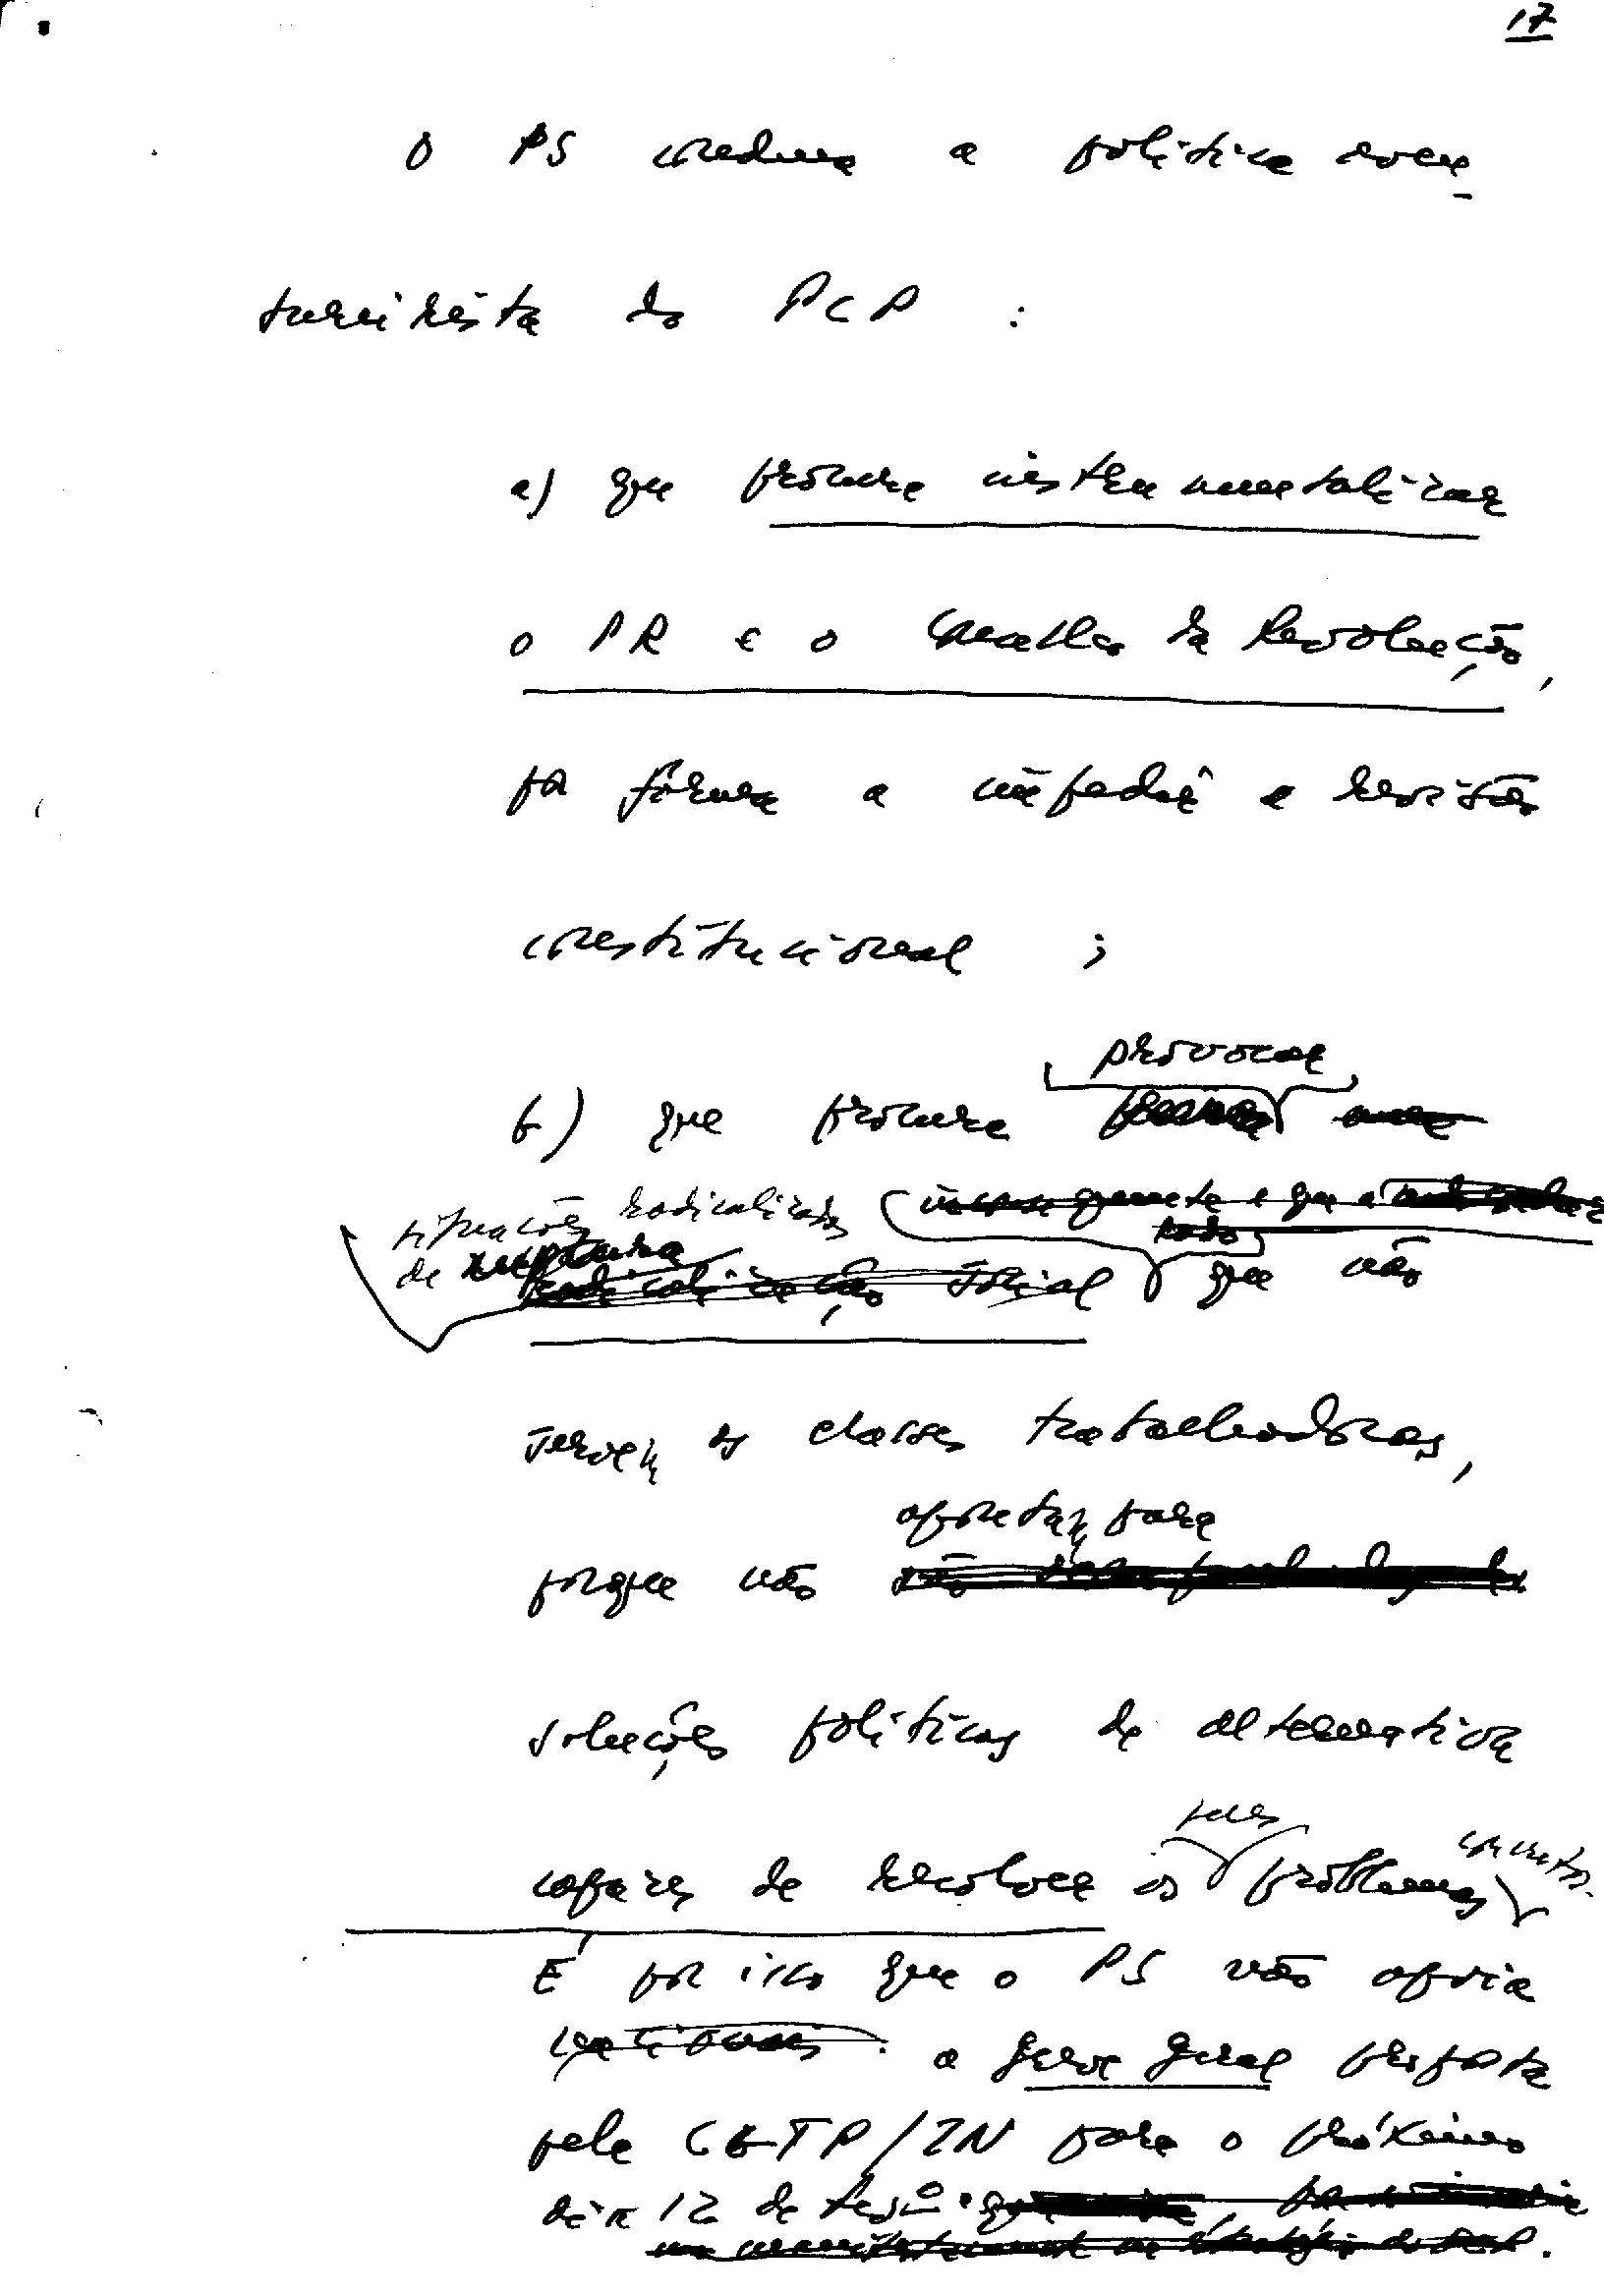 17
O PS condena a política aven-
tureirista do PCP :
a) que procura instrumentalizar
o PR e o Conselho da Revolução,
por forma a impedir a revisão
constitucional ;
provocar
b) que procura
situações radicalizadas
de ruptura
radicalização social que não
servem as classes trabalhadoras,
apontam para
porque não
soluções políticas de alternativa
seus concretos.
capazes de resolver os problemas
É por isso que o PS não apoia
a greve geral proposta
pela CGTP/IN para o próximo
dia 12 de Fevº.